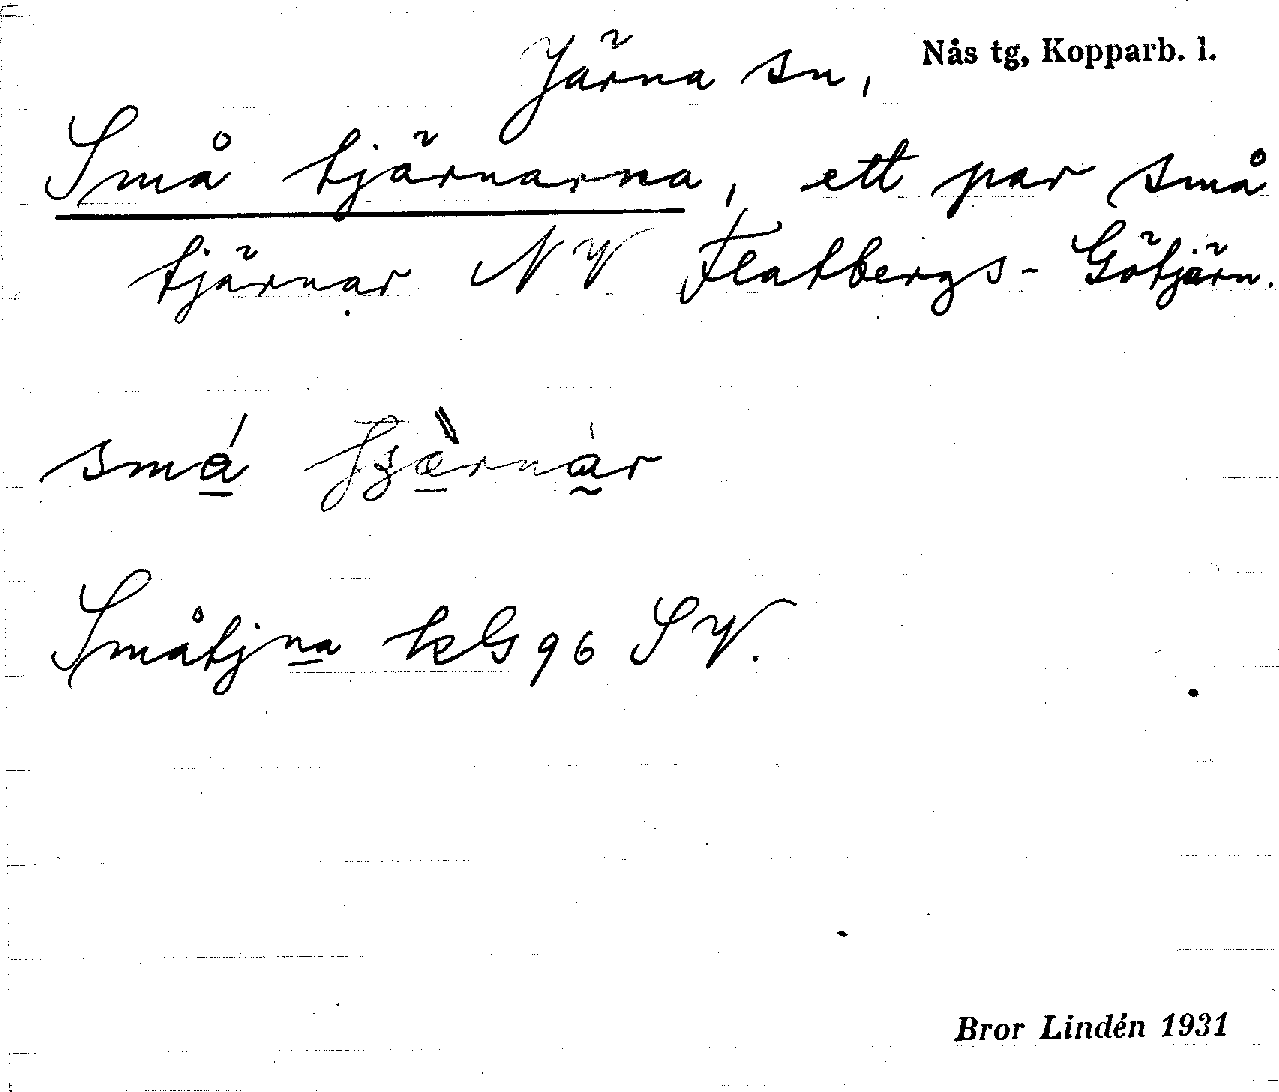 Järna sn, Nås tg, Kopparb. l.
Små tjärnarna, ett par små
tjärnar NV Flatbergs-Götjärn.
små
Småtjna kG96 SV.
Bror Lindén 1931